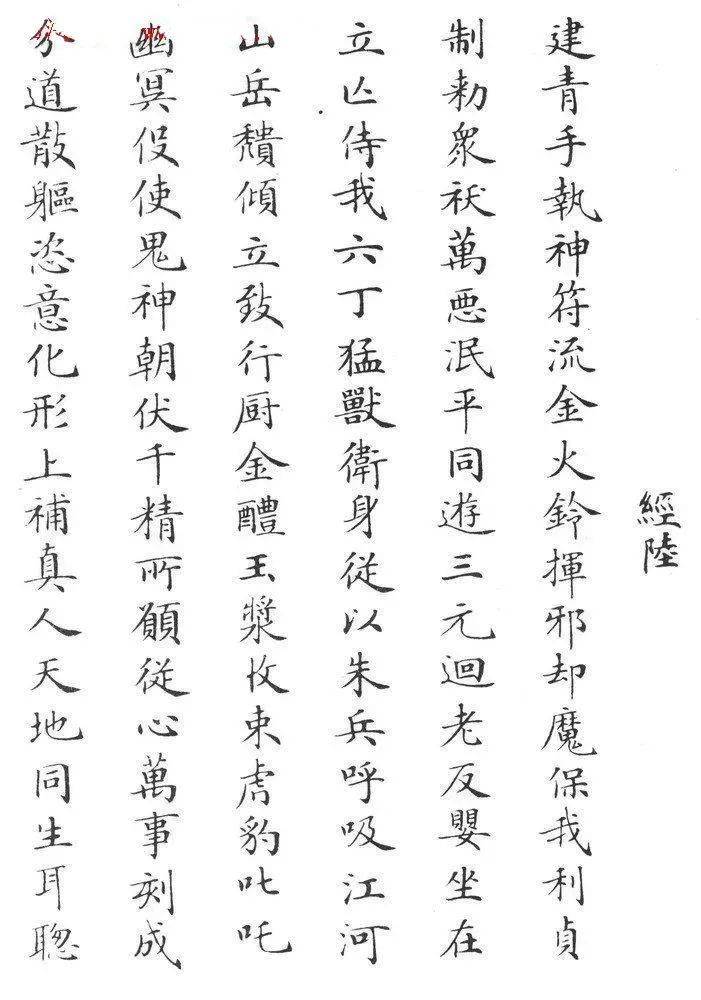 經陸
建青手執神符流金火鈴揮邪却魔保我利貞
制勅衆祅萬悪泯平同遊三元迴老反嬰坐在
立亾侍我六丁猛獸衛身從以朱兵呼吸江河
山岳穨傾立致行厨金醴玉漿收束虎豹叱吒
幽冥伇使鬼神朝伏千精所願從心萬事刻成
分道散軀恣意化形上補真人天地同生耳聦